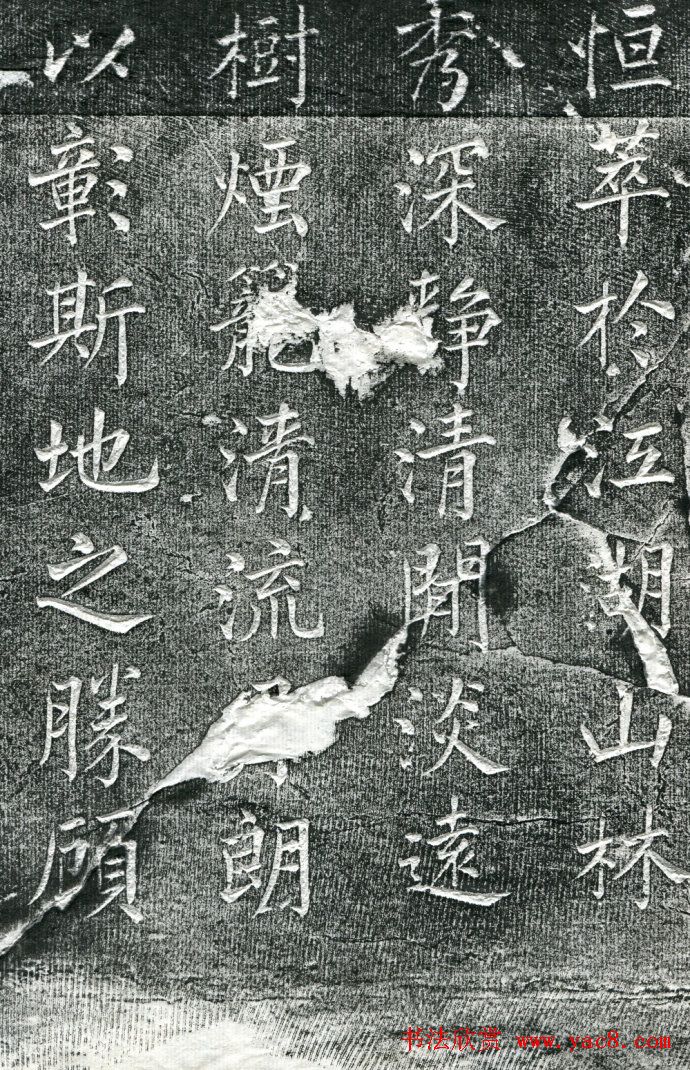 恒萃於江湖山林
秀深静清閒淡遠
樹煙籠清流朗
以彰斯地之勝顧
书法欣赏 www.yac8.com